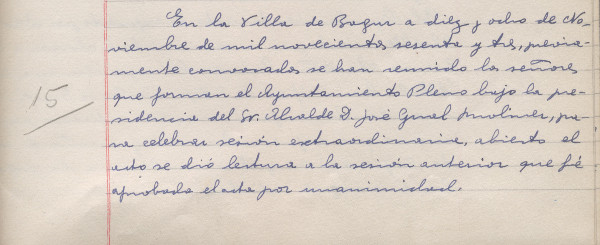 En la Villa de Bagur a diez y ocho de No-
viembre de mil novecientos sesenta y tres, previa-
mente convocados se han reunido los señores
que forman el Ayuntamiento Pleno bajo la pre-
sidencia del Sr. Alcalde D. José Gual Moliner, pa-
ra celebrar sesión extraordinaria, abierto el
15
acto se dió lectura a la sesión anterior que fué
aprobada el acta por unanimidad.